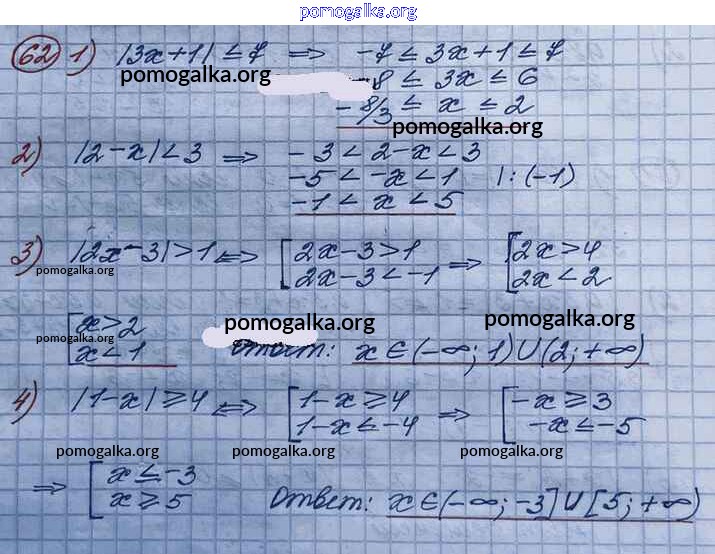 pomogalka.org
62) 1) |3x+1| ≤ 7 ⇒ -7 ≤ 3x+1 ≤ 7
pomogalka.org 8 ≤ 3x ≤ 6
-8/3 ≤ x ≤ 2
pomogalka.org
2) |2-x| < 3 ⇒ -3 < 2-x < 3
-5 < -x < 1 |:(-1)
-1 < x < 5
3) |2x-3| > 1 ⇔ [2x-3 > 1 ⇒ [2x > 4
2x-3 < -1 2x < 2
pomogalka.org
[x > 2 pomogalka.org pomogalka.org
pomogalka.org
x < 1 Ответ: x∈(-∞; 1)∪(2; +∞)
4) |1-x| ≥ 4 ⇔ [1-x ≥ 4 ⇒ [-x ≥ 3
1-x ≤ -4 -x ≤ -5
pomogalka.org pomogalka.org pomogalka.org
⇒ [x ≤ -3
x ≥ 5 Ответ: x∈(-∞; -3]∪[5; +∞)